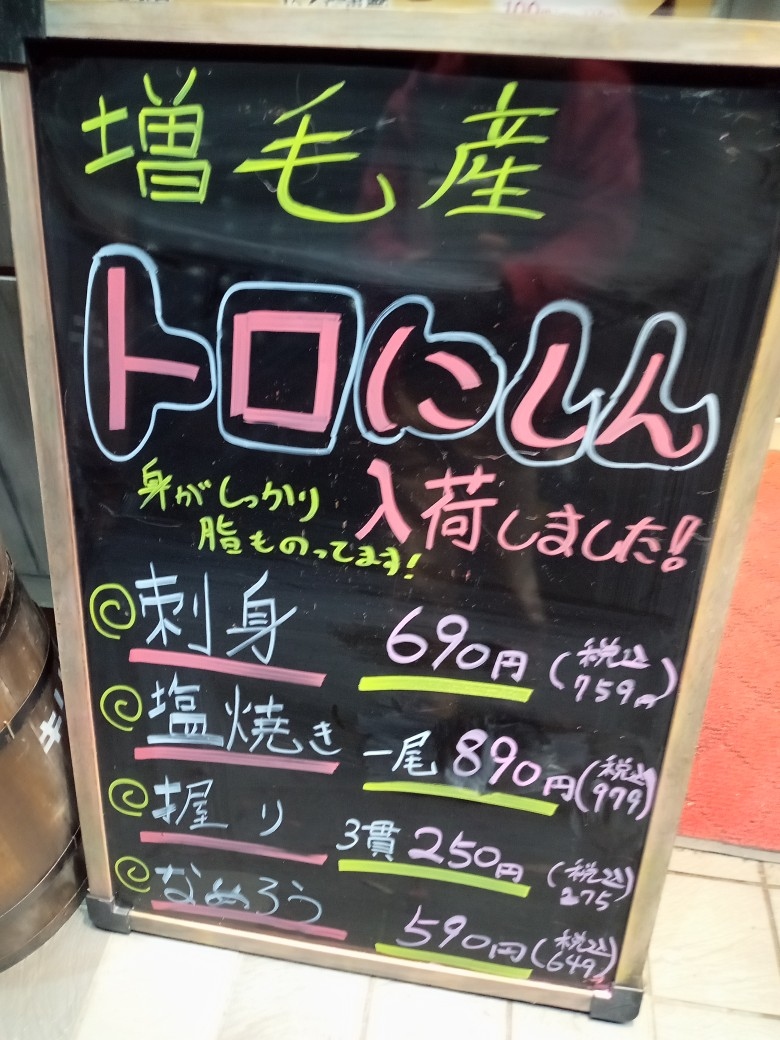 増毛産
トロにしん
入荷しました!!
身がしっかり
脂ものってます!
刺身 690円 (税込 759円)
塩焼き 一尾 890円 (税込 979)
握り 3貫 250円 (税込 275)
なめろう 590円 (税込 649)